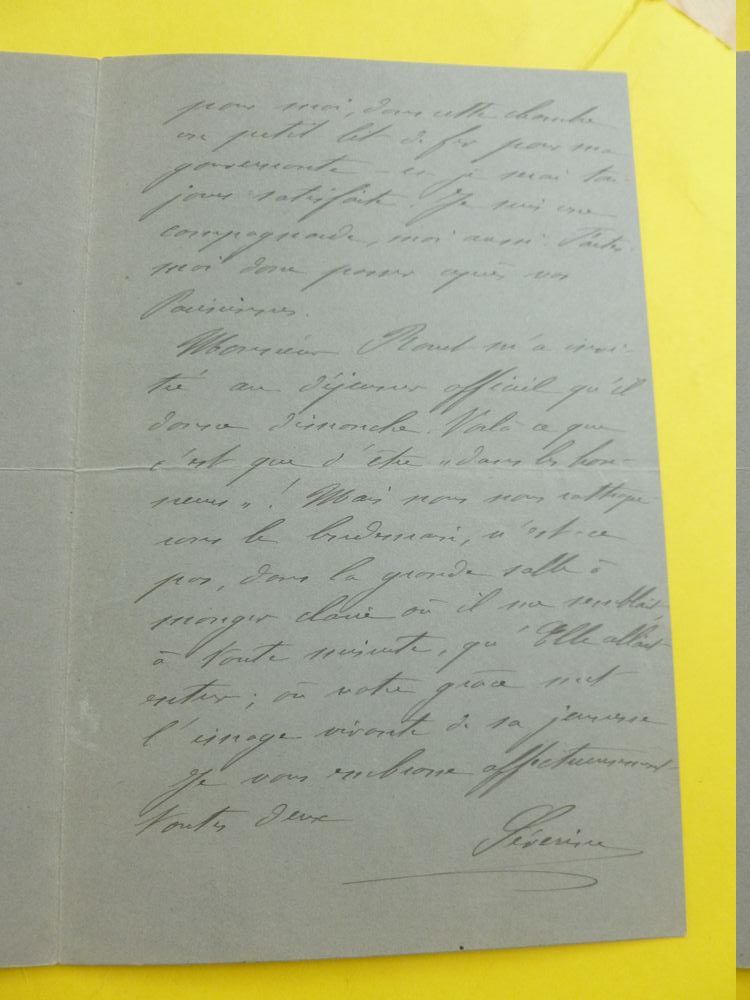 pour moi, dans cette chambre
un petit lit de fer pour ma
gouvernante – et je serai tou-
jours satisfaite. Je suis une
campagnarde, moi aussi. Faites-
moi donc passer après vos
Parisiennes.
Monsieur Rouet m'a invi-
té au déjeuner officiel qu'il
donne dimanche. Voilà ce que
c'est que d'être "dans les hon-
neurs" ! Mais nous nous rattrape-
rons le lendemain, n'est-ce
pas, dans la grande salle à
manger claire où il me semblait
à toute minute, qu'Elle allait
entrer ; où votre grâce met
l'image vivante de sa jeunesse
Je vous embrasse affectueusement
toutes deux
Séverine